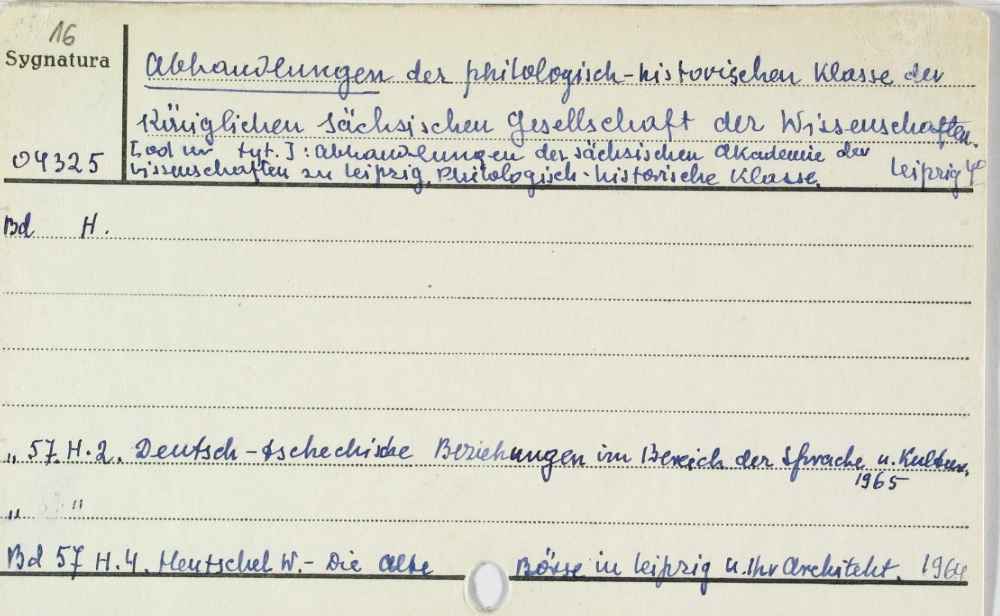 16
Sygnatura
Abhandlungen der philologisch-historischen Klasse der
Königlichen Sächsischen Gesellschaft der Wissenschaften.
04325
[od nr tyt.]: Abhandlungen der sächsischen Akademie der
Wissenschaften zu Leipzig, Philologisch-historische Klasse.
Leipzig 4°
Bd H.
„ 57 H.2. Deutsch-tschechische Beziehungen im Bereich der Sprache u. Kultur.
1965
„ "
Bd 57 H.4. Hentschel W.- Die Alte Börse in Leipzig u. Ihr Architekt. 1964